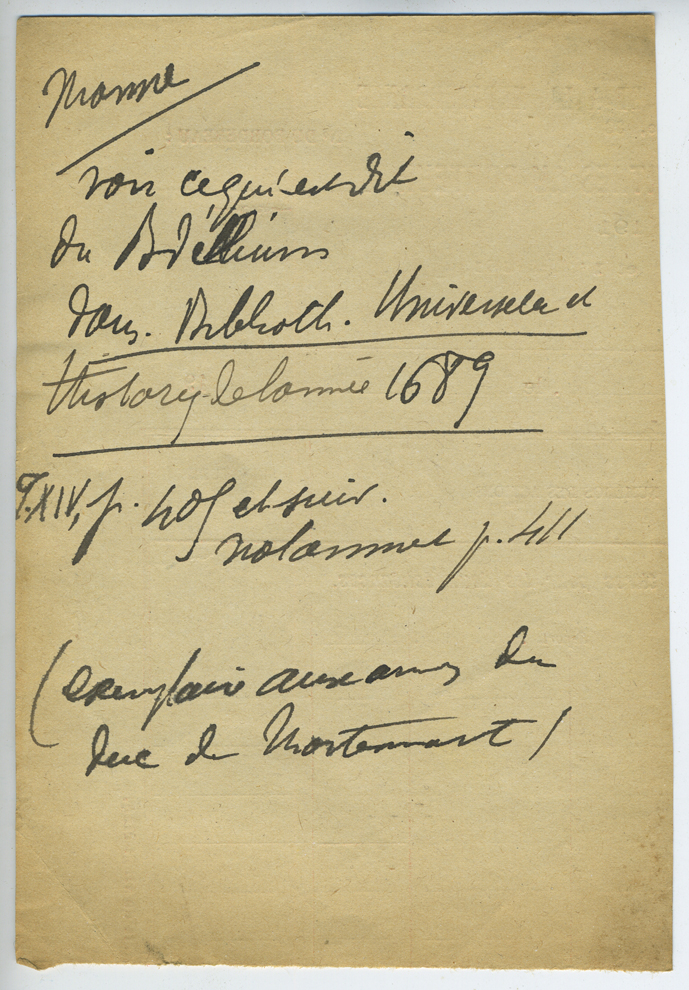 Manne
voir ce qui est dit
du Bdellium
dans Biblioth. Universelle et
History de l'année 1689
T. XIV, p. 405 et suiv.
notamment p. 411
(exemplaire aux armes du
duc de Mortemart)